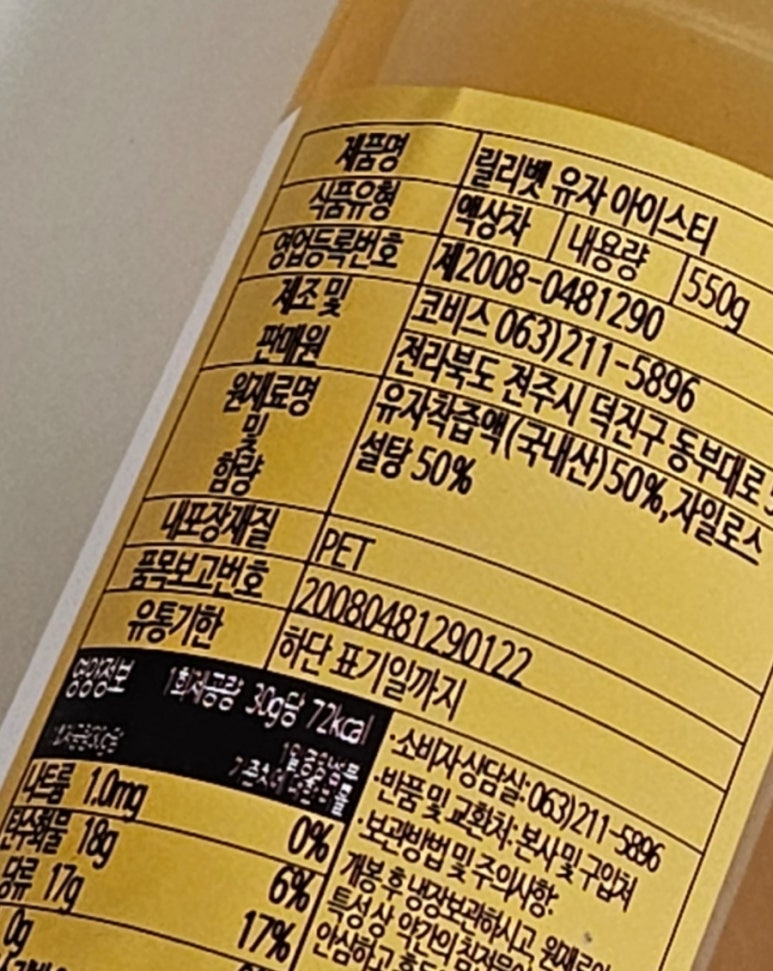 제품명 릴리벳 유자 아이스티
식품유형 액상차 내용량 550g
영업등록번호 제2008-0481290
제조 및 코비스 063)211-5896
판매원 전라북도 전주시 덕진구 동부대로
원재료명 유자착즙액(국내산)50%,자일로스
및 설탕 50%
함량
내포장재질 PET
품목보고번호 20080481290122
유통기한 하단 표기일까지
영양정보 1회제공량 30g당 72kcal
나트륨 1.0mg 0%
탄수화물 18g 6%
당류 17g 17%
0g
·소비자상담실:063)211-5896
·반품 및 교환처:본사 및 구입처
·보관방법 및 주의사항:
개봉 후 냉장보관하시고, 원재료의
특성상 약간의 침전물이
안심하고